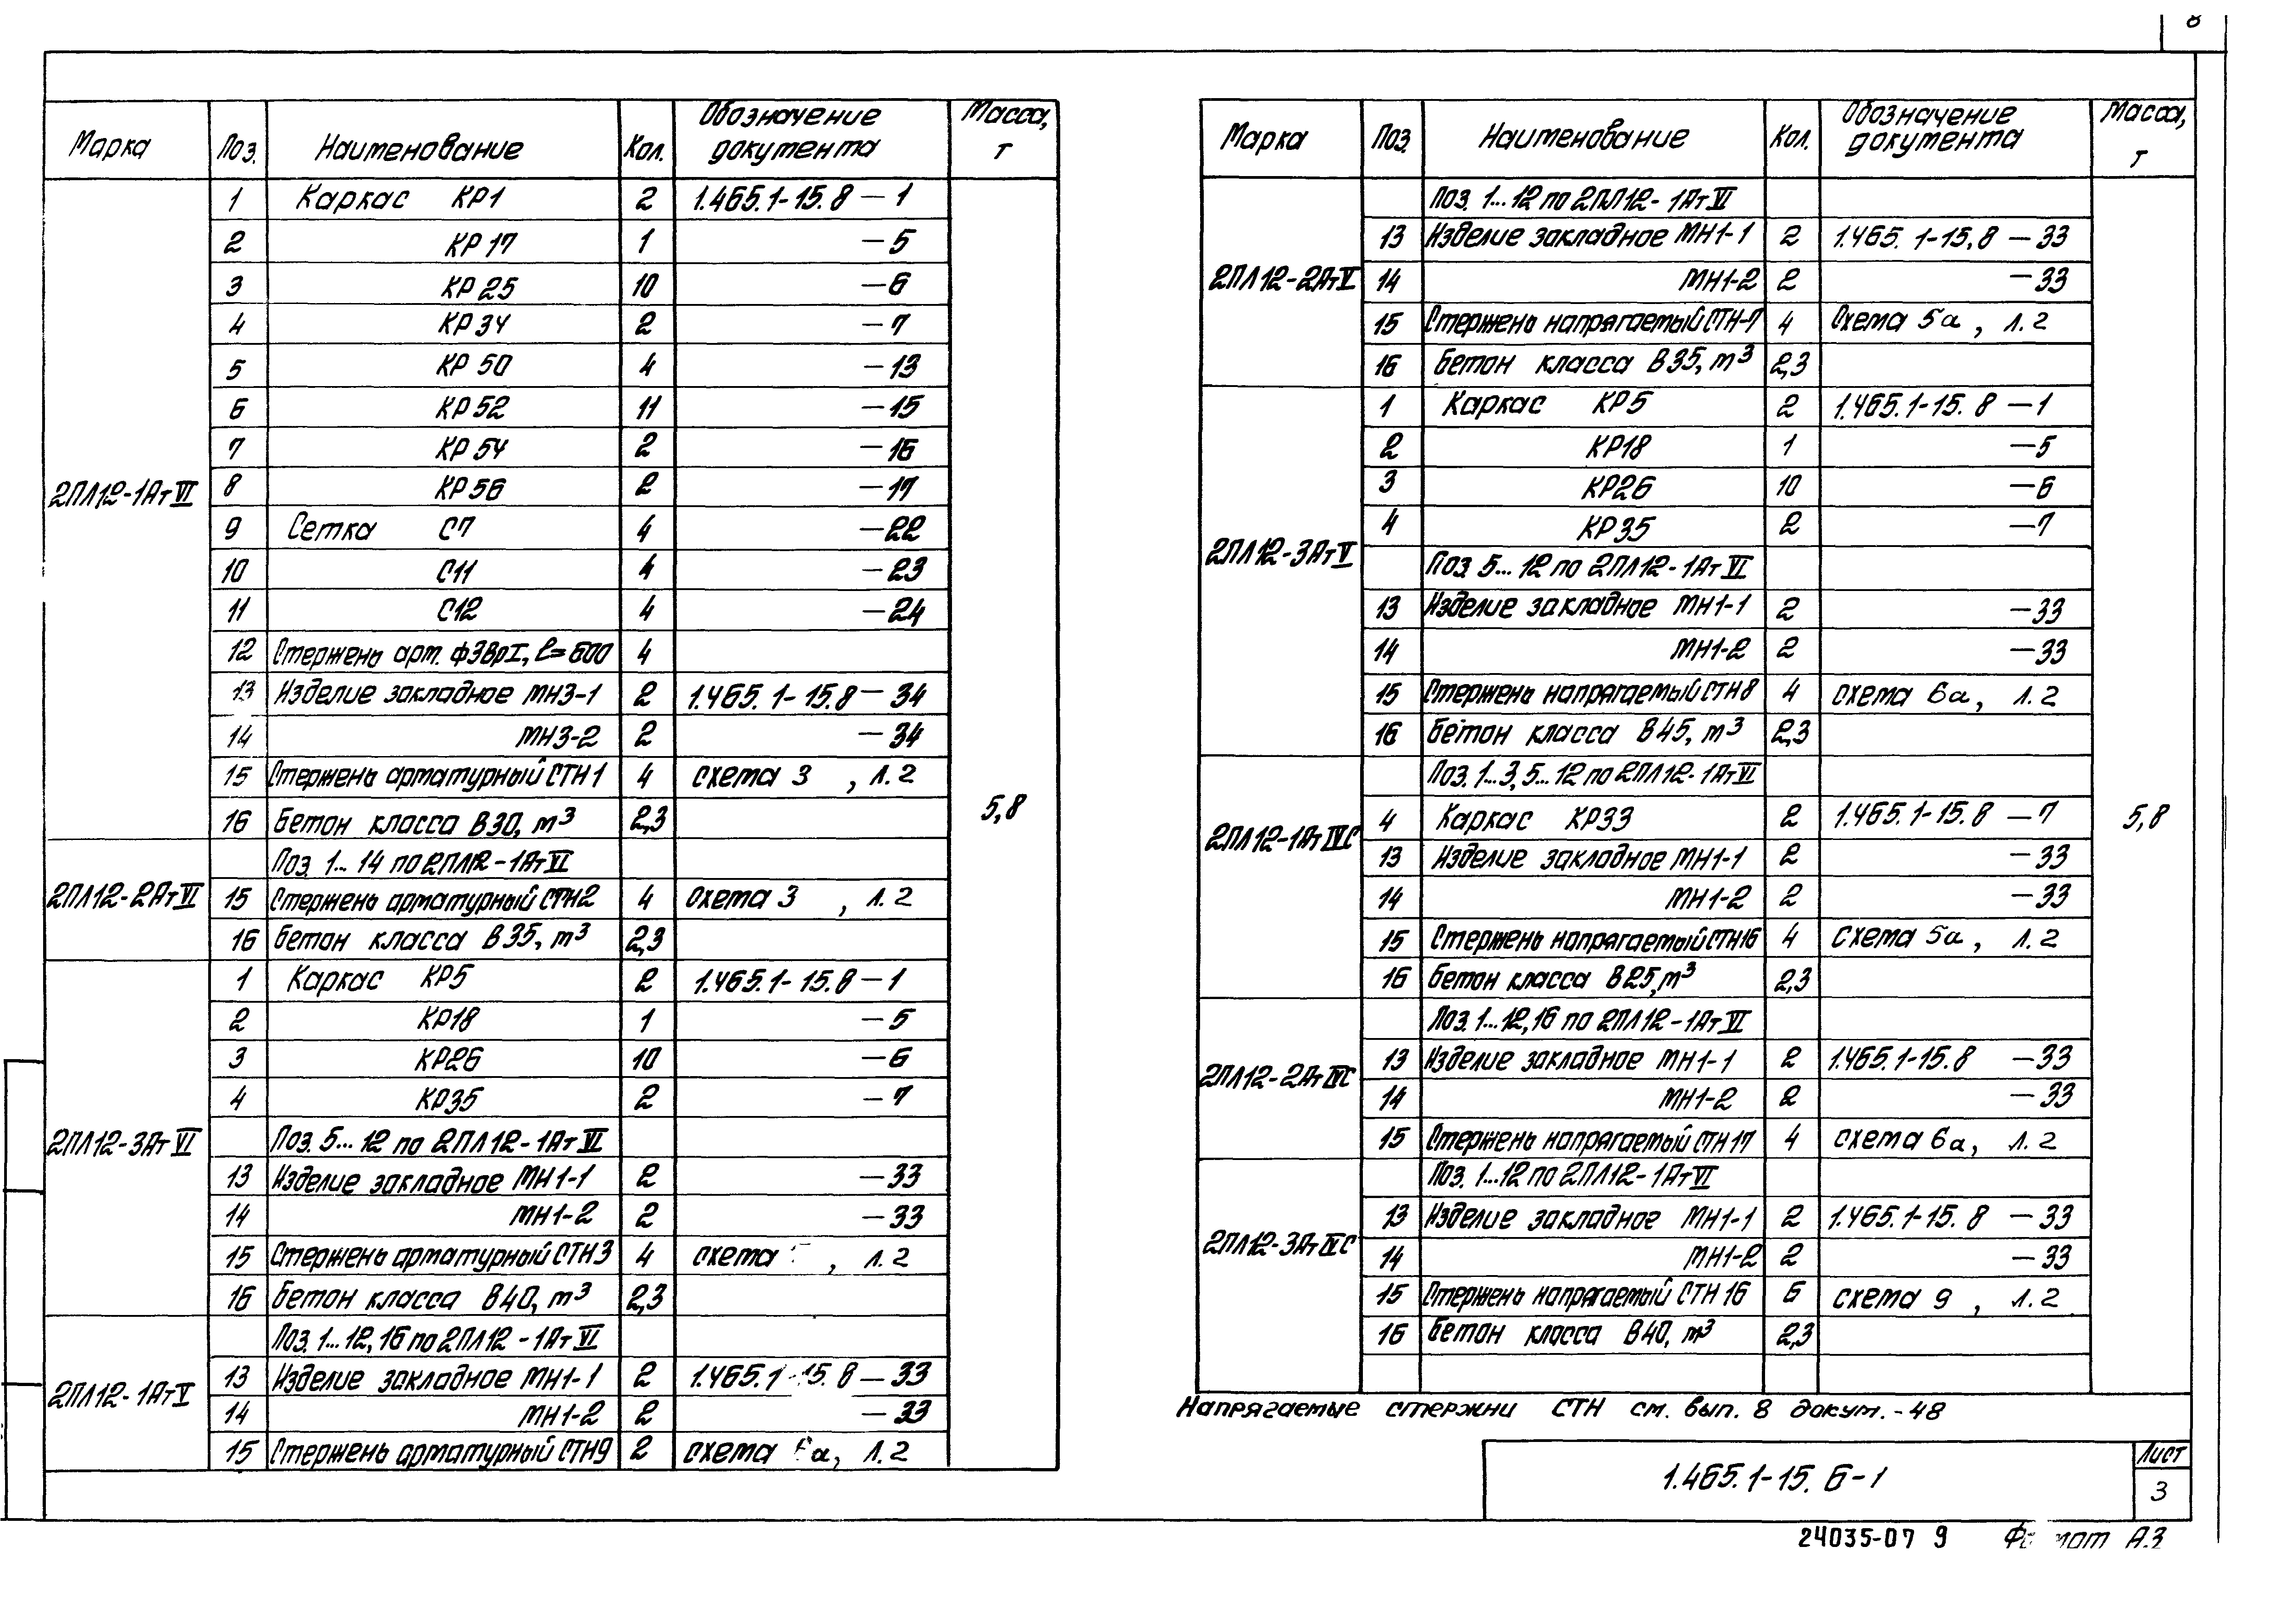 8
Марка Поз. Наименование Кол. Обозначение документа Масса, т
2ПЛ12-1АтVI
1 Каркас КР1 2 1.465.1-15.8 — 1
2 КР17 1 — 5
3 КР25 10 — 6
4 КР34 2 — 7
5 КР50 4 — 13
6 КР52 11 — 15
7 КР54 2 — 16
8 КР56 2 — 17
9 Сетка С7 4 — 22
10 С11 4 — 23
11 С12 4 — 24
12 Стержень арт. ф3ВрI, ℓ=600 4
13 Изделие закладное МН3-1 2 1.465.1-15.8 — 34
14 МН3-2 2 — 34
15 Стержень арматурный СТН1 4 схема 3 , л. 2
16 Бетон класса В30, м³ 2,3
5,8
2ПЛ12-2АтVI
Поз. 1... 14 по 2ПЛ12-1АтVI
15 Стержень арматурный СТН2 4 схема 3 , л. 2
16 Бетон класса В35, м³ 2,3
2ПЛ12-3АтVI
1 Каркас КР5 2 1.465.1-15.8 — 1
2 КР18 1 — 5
3 КР26 10 — 6
4 КР35 2 — 7
Поз. 5... 12 по 2ПЛ12-1АтVI
13 Изделие закладное МН1-1 2 — 33
14 МН1-2 2 — 33
15 Стержень арматурный СТН3 4 схема , л. 2
16 Бетон класса В40, м³ 2,3
2ПЛ12-1АтV
Поз. 1... 12, 16 по 2ПЛ12-1АтVI
13 Изделие закладное МН1-1 2 1.465.1-15.8 — 33
14 МН1-2 2 — 33
15 Стержень арматурный СТН9 2 схема а, л. 2
Марка Поз. Наименование Кол. Обозначение документа Масса, т
2ПЛ12-2АтV
Поз. 1... 12 по 2ПЛ12-1АтVI
13 Изделие закладное МН1-1 2 1.465.1-15,8 — 33
14 МН1-2 2 — 33
15 Стержень напрягаемый СТН-7 4 Схема 5а , л. 2
16 Бетон класса В35, м³ 2,3
2ПЛ12-3АтV
1 Каркас КР5 2 1.465.1-15.8 — 1
2 КР18 1 — 5
3 КР26 10 — 6
4 КР35 2 — 7
Поз. 5... 12 по 2ПЛ12-1АтVI
13 Изделие закладное МН1-1 2 — 33
14 МН1-2 2 — 33
15 Стержень напрягаемый СТН8 4 схема 6а, л. 2
16 Бетон класса В45, м³ 2,3
2ПЛ12-1АтIVС
Поз. 1...3, 5... 12 по 2ПЛ12-1АтVI
4 Каркас КР33 2 1.465.1-15.8 — 7
5,8
13 Изделие закладное МН1-1 2 — 33
14 МН1-2 2 — 33
15 Стержень напрягаемый СТН16 4 схема 5а, л. 2
16 Бетон класса В25, м³ 2,3
2ПЛ12-2АтIVС
Поз. 1...12, 16 по 2ПЛ12-1АтVI
13 Изделие закладное МН1-1 2 1.465.1-15.8 — 33
14 МН1-2 2 — 33
15 Стержень напрягаемый СТН17 4 схема 6а, л. 2
2ПЛ12-3АтIVС
Поз. 1...12 по 2ПЛ12-1АтVI
13 Изделие закладное МН1-1 2 1.465.1-15.8 — 33
14 МН1-2 2 — 33
15 Стержень напрягаемый СТН16 6 схема 9 , л. 2
16 Бетон класса В40, м³ 2,3
Напрягаемые стержни СТН см. вып. 8 докум. -48
1.465.1-15. 6-1
Лист
3
24035-07 9 Формат А3